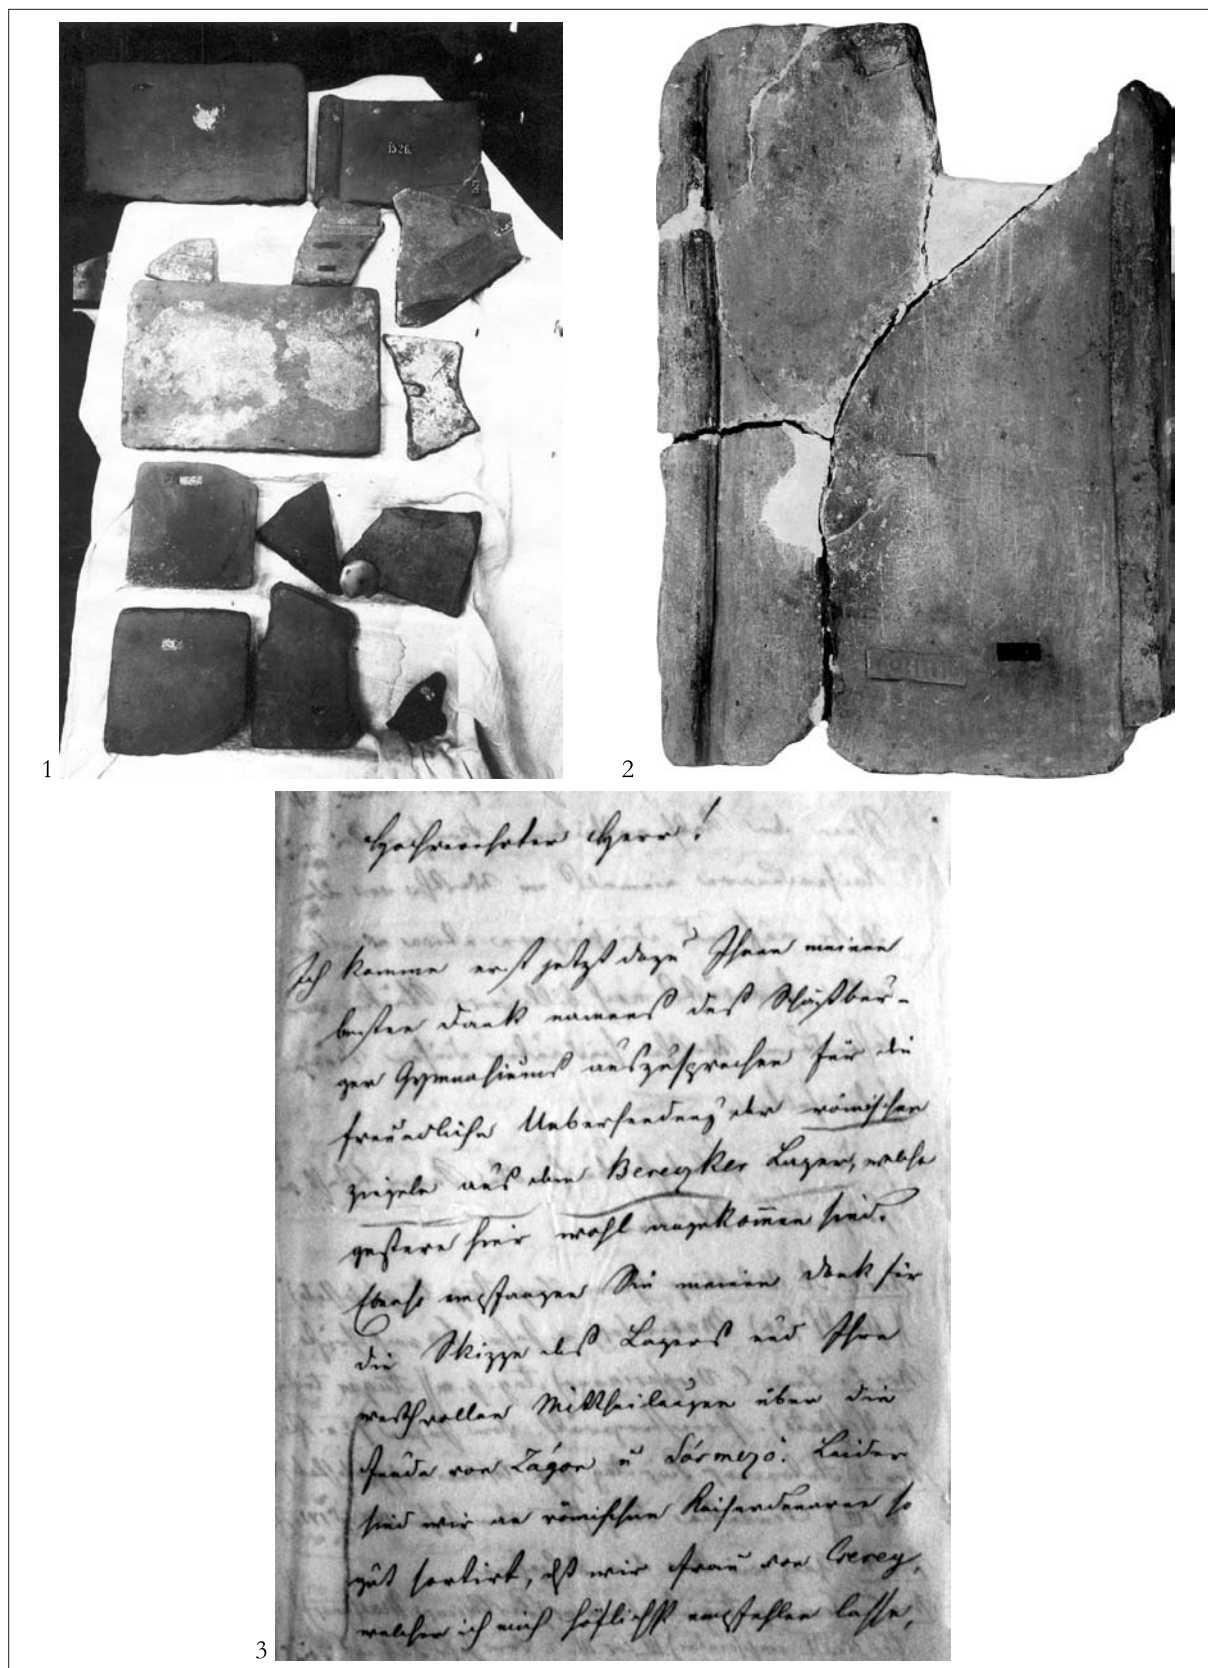 1
2
3
Hochverehrter Herr!
Ich komme erst jetzt dazu Ihnen meinen
besten Dank namens des Schäßbur-
ger Gymnasiums auszusprechen für die
freundliche Uebersendung der römischen
Ziegeln aus dem Bereczker Lager, welche
gestern hier wohl angekom̄en sind.
Ebenso empfangen Sie meinen Dank für
die Skizze des Lagers und Ihre
werthvollen Mittheilungen über die
Funde von Zágon u Sósmező. Leider
sind wir an römischen Kaiserdenaren so
gut sortirt, daß wir Frau von Cserey,
welcher ich mich höflichst empfehlen lasse,